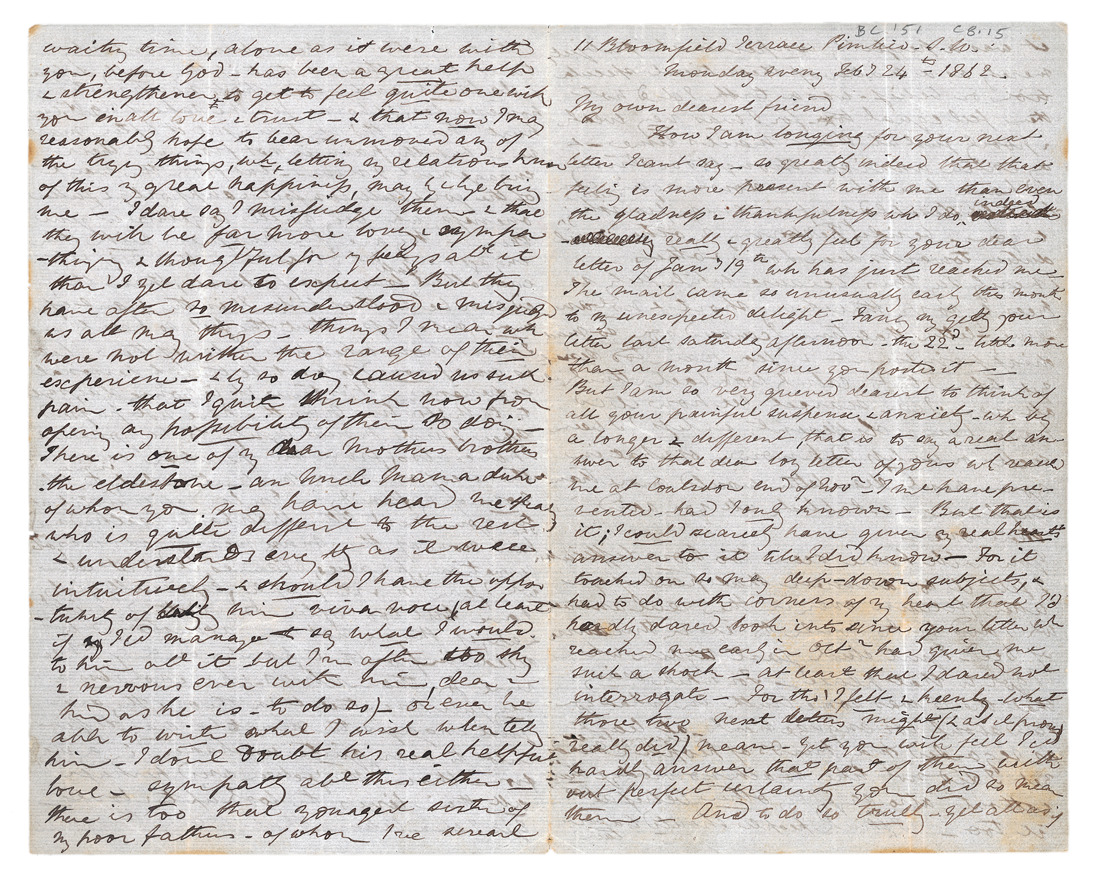 BC 151 CB.15
11 Bloomfield Terrace Pimlico. S. W.
Monday eveng Feby 24th 1862.
My own dearest friend
How I am longing for your next
letter I cant say – so greatly indeed that that
feelg is more present with me than even
the gladness & thankfulness wh I do indeed
really & greatly feel for your dear
letter of Jany 19th wh has just reached me
The mail came so unusually early this month
to my unexpected delight – Fancy my gettg your
letter last saturday afternoon – the 22d little more
than a month since you posted it –
But I am so very grieved dearest to think of
all your painful suspense & anxiety – wh by
a longer & different that is to say a real an-
swer to that dear long letter of yours wh reachd
me at Coulsdon end of Novr – I me have pre-
vented – had I only known – But that is
it; I could scarcely have given my real hearts
answer to it till I did know – For it
touched on so many deep-down subjects, &
had to do with corners of my heart that I'd
hardly dared look into since your letter wh
reached me early in Octr had given me
such a shock – at least that I dared not
interrogate – For tho' I felt & keenly – what
those two next letters might (& as it proves
really did) mean – yet you will feel I cd
hardly answer that part of them with-
out perfect certainty you did so mean
them – And to do so truly – yet at all
waitg time, alone as it were with
you, before God – has been a great help
& strengthener to get to feel quite one with
you in all love & trust – & that now I may
reasonably hope to bear unmoved any of
the tryg things, wh, letting my relations know
of this my great happiness, may bring
me – I dare say I misjudge them – & that
they will be far more lovg & sympa-
-thizing & thoughtful for my feelgs abt it
than I yet dare to expect – But they
have often so misunderstood & misjudged
us all in many things – things I mean wh
were not within the range of their
experience – & by so doing caused us such
pain – that I quite shrink now from
opening any possibility of their so doing –
There is one of my dear Mothers brothers
the eldest one – an Uncle Marmaduke
of whom you may have heard me speak
who is quite different to the rest
& understands everythg as it were
intuitively – & should I have the oppor
-tunity of tellg him viva voce (at least
if I cd manage to say what I would
to him abt it but I'm often too shy
& nervous even with him, dear –
kind as he is – to do so) – or even be
able to write what I wish when tellg
him – I don't doubt his real helpful
love – sympathy abt this either –
there is too that youngest sister of
my poor fathers – of whom I've several